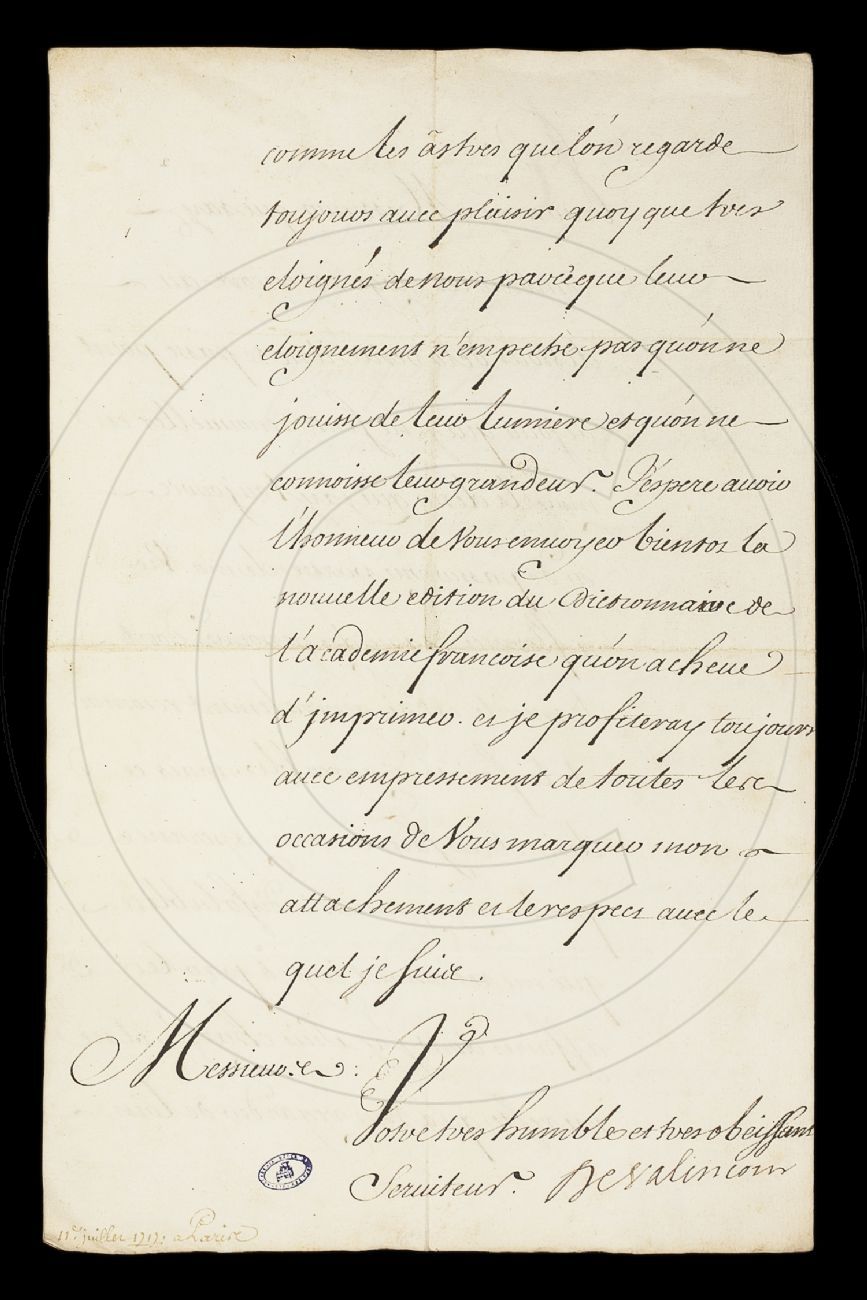 comme les astres que l'on regarde
toujours avec plaisir quoy que tres
eloignés de nous parceque leur
eloignement n'empeche pas qu'on ne
jouisse de leur lumiere et qu'on ne
connoisse leur grandeur. J'espere avoir
l'honneur de Vous envoyer bientot la
nouvelle edition du Dictionnaire de
l'academie francoise qu'on acheve
d'jmprimer. et je profiteray toujours
avec empressement de toutes les
occasions de Vous marquer mon
attachement et le respect avec le
quel je suis.
Messieurs:
Votre tres humble et tres obeissant
Serviteur. De Valincour
11e juillet 1717: a Paris